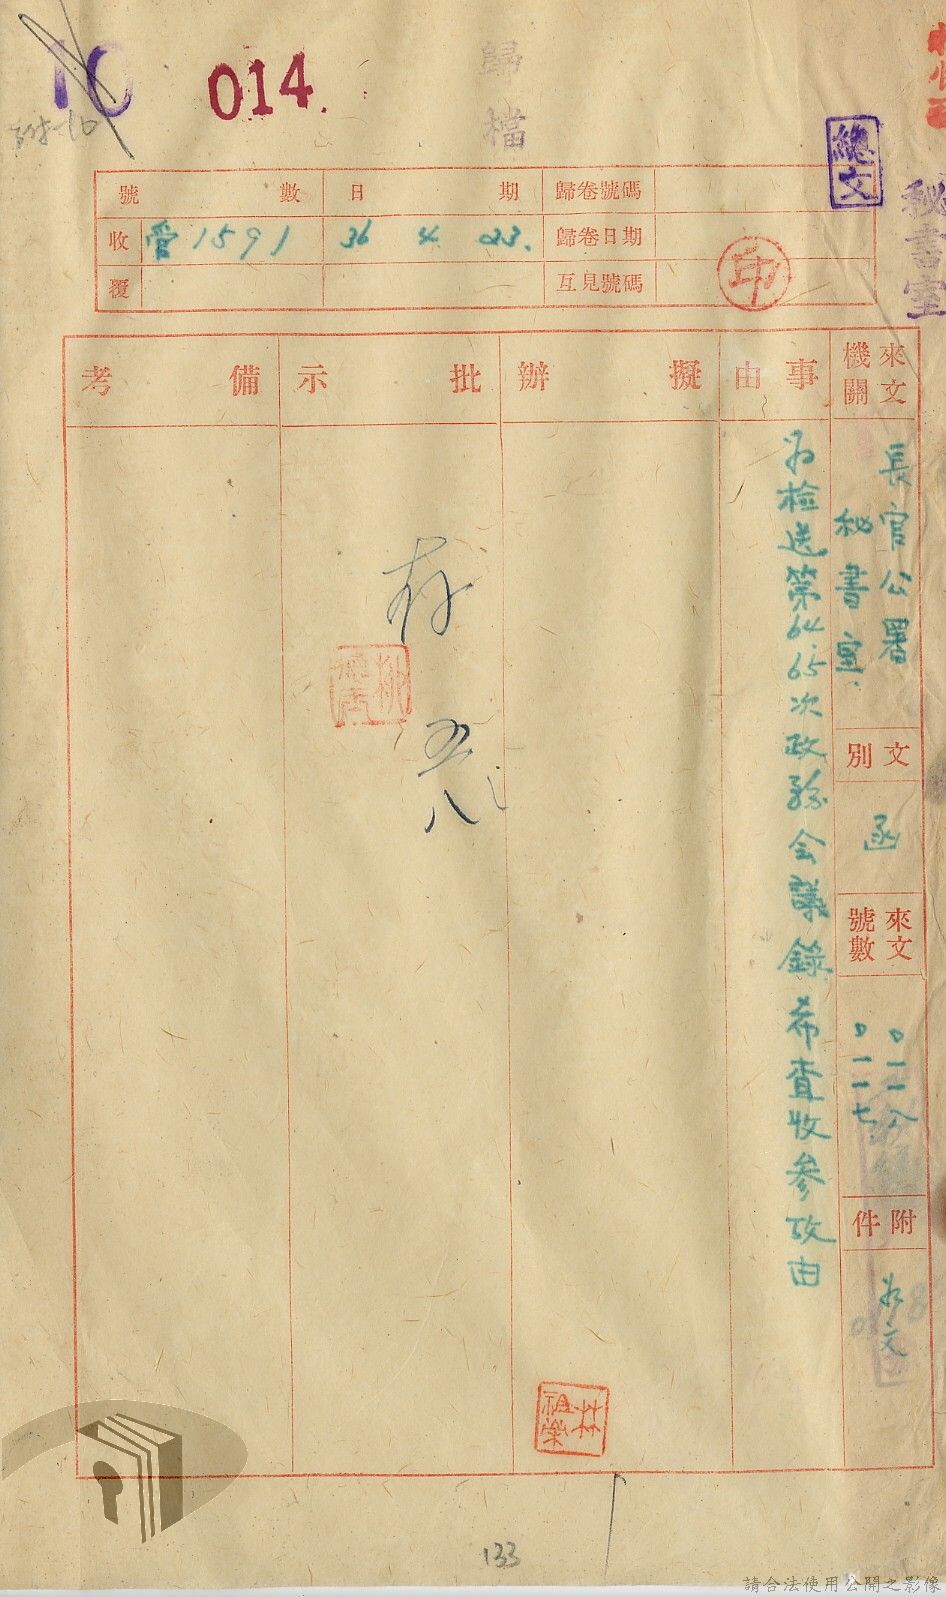 014.
歸檔
總文
秘書室
號數 日期 歸卷號碼
收 管1591 36 4 23. 歸卷日期
覆 互見號碼
印
來文機關
長官公署
秘書室
文別
函
來文號數
0一一八
0一一七
附件
如文
事由
為檢送第64.65次政務会議錄希查收參攷由
擬辦
批示
存
五八
備考
林祖榮
133
請合法使用公開之影像